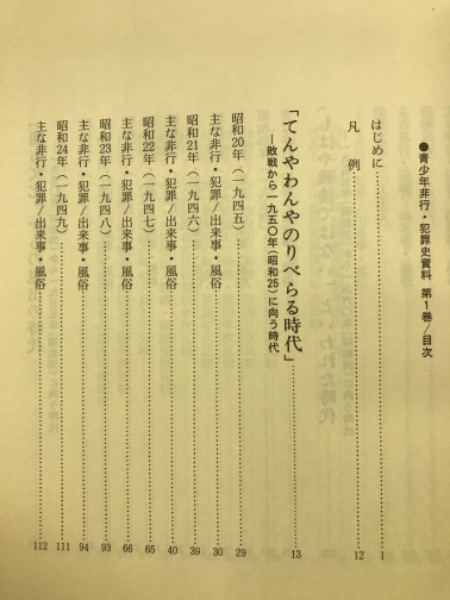 ●青少年非行・犯罪史資料 第1巻/目次
はじめに……………………1
凡 例……………………12
「てんやわんやのりべらる時代」……………………13
―敗戦から一九五〇年(昭和25)に向う時代
昭和20年(一九四五)……………………29
主な非行・犯罪/出来事・風俗……………………30
昭和21年(一九四六)……………………39
主な非行・犯罪/出来事・風俗……………………40
昭和22年(一九四七)……………………65
主な非行・犯罪/出来事・風俗……………………66
昭和23年(一九四八)……………………93
主な非行・犯罪/出来事・風俗……………………94
昭和24年(一九四九)……………………111
主な非行・犯罪/出来事・風俗……………………112